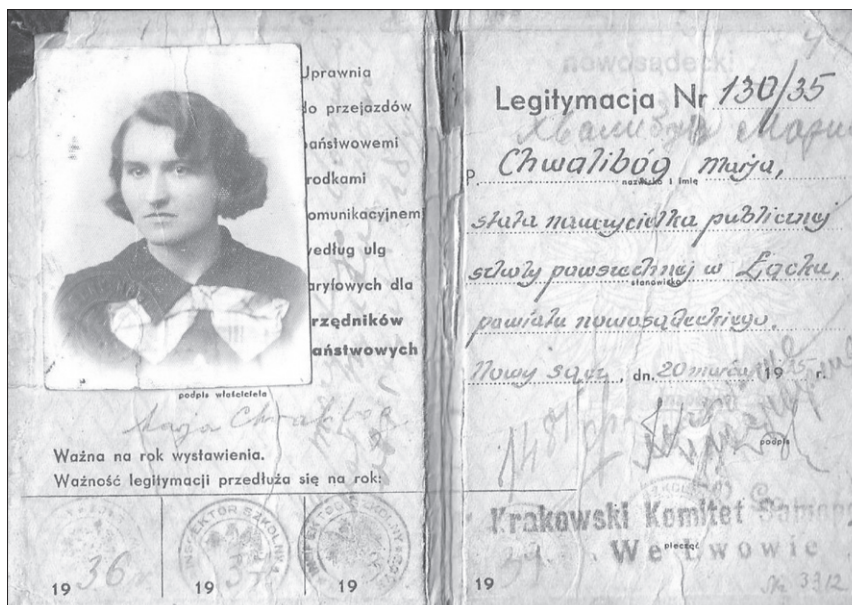 Uprawnia
do przejazdów
państwowemi
środkami
komunikacyjnemi
według ulg
taryfowych dla
urzędników
państwowych
podpis właściciela
Marja Chwalibóg
Ważna na rok wystawienia.
Ważność legitymacji przedłuża się na rok:
INSPEKTOR SZKOLNY
INSPEKTOR SZKOLNY
19 36 r
19 37
19
nowosądecki
Legitymacja Nr 130/35
Хвалибуг Мария
P. Chwalibóg Marja,
nazwisko i imię
stała nauczycielka publicznej
szkoły powszechnej w Łącku,
stanowisko
powiatu nowosądeckiego.
Nowy Sącz, dn. 20 marca 1935 r.
podpis
Krakowski Komitet
We Lwowie
pieczęć
19
№ 3312